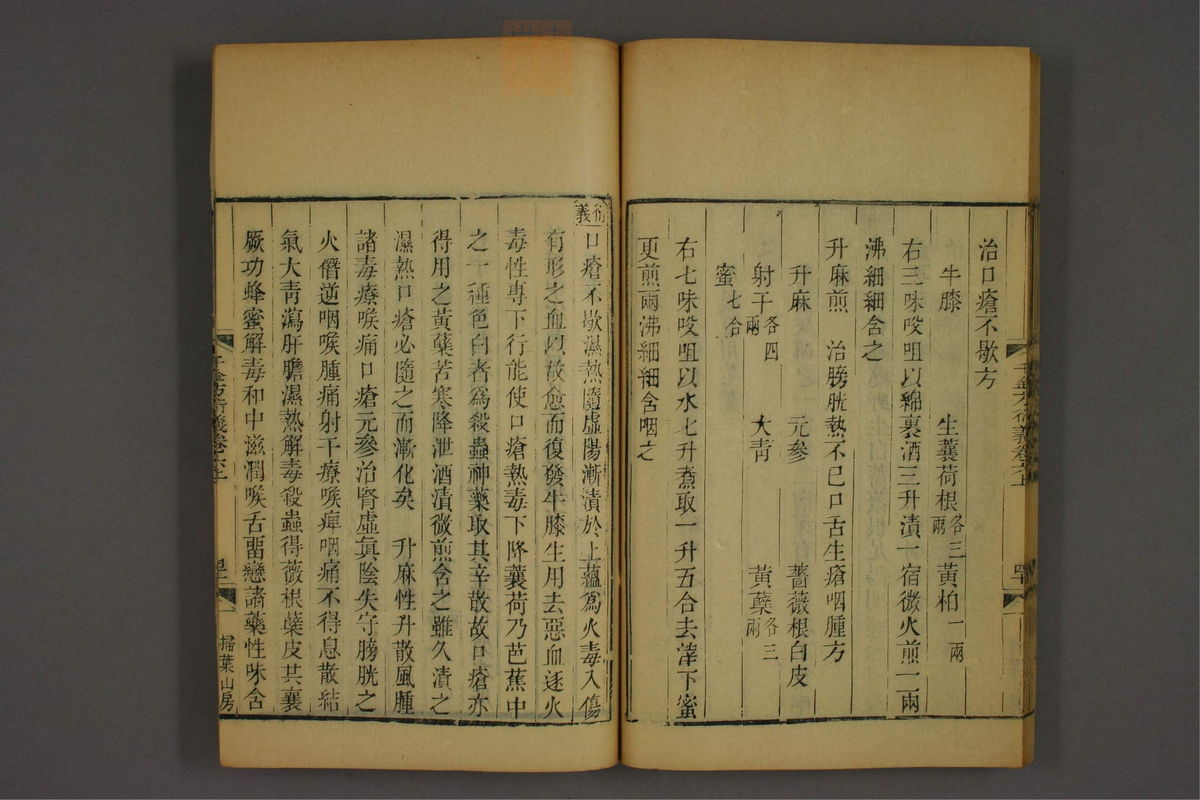 治口瘡不歇方
牛膝 生蘘荷根各三兩 黃柏一兩
右三味㕮咀以綿裹酒三升漬一宿微火煎一兩
沸細細含之
升麻煎 治膀胱熱不已口舌生瘡咽腫方
升麻 元參 薔薇根白皮
射干各四兩 大青 黃蘗各三兩
蜜七合
右七味㕮咀以水七升煮取一升五合去滓下蜜
更煎兩沸細細含咽之
千金方衍義卷六上
衍義
口瘡不歇濕熱隨虛陽漸漬於上蘊爲火毒入傷
有形之血以故愈而復發牛膝生用去惡血逐火
毒性專下行能使口瘡熱毒下降蘘荷乃芭蕉中
之一種色白者爲殺蟲神藥取其辛散故口瘡亦
得用之黃蘗苦寒降泄酒漬微煎含之雖久漬之
濕熱口瘡必隨之而漸化矣 升麻性升散風腫
諸毒療喉痛口瘡元參治腎虛真陰失守膀胱之
火僭逆咽喉腫痛射干療喉痺咽痛不得息散結
氣大青瀉肝膽濕熱解毒殺蟲得薇根蘗皮其襄
厥功蜂蜜解毒和中滋潤喉舌畱戀諸藥性味含
掃葉山房